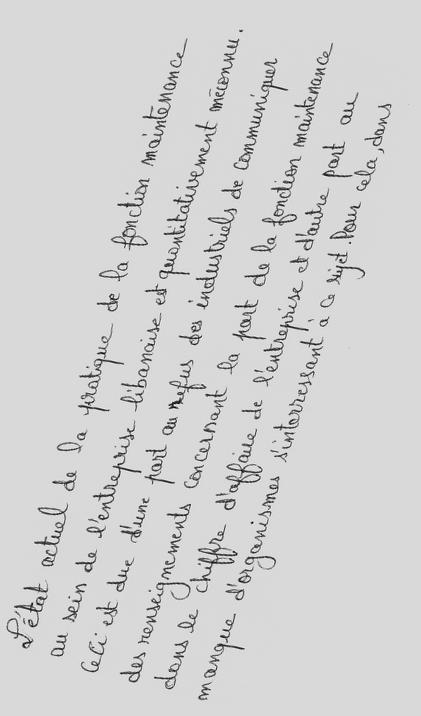 L'état actuel de la pratique de la fonction maintenance
au sein de l'entreprise libanaise est quantitativement méconnu.
Ceci est due d'une part au refus des industriels de communiquer
des renseignements concernant la part de la fonction maintenance
dans le chiffre d'affaire de l'entreprise et d'autre part au
manque d'organismes s'interressant à ce sujet. Pour cela, dans